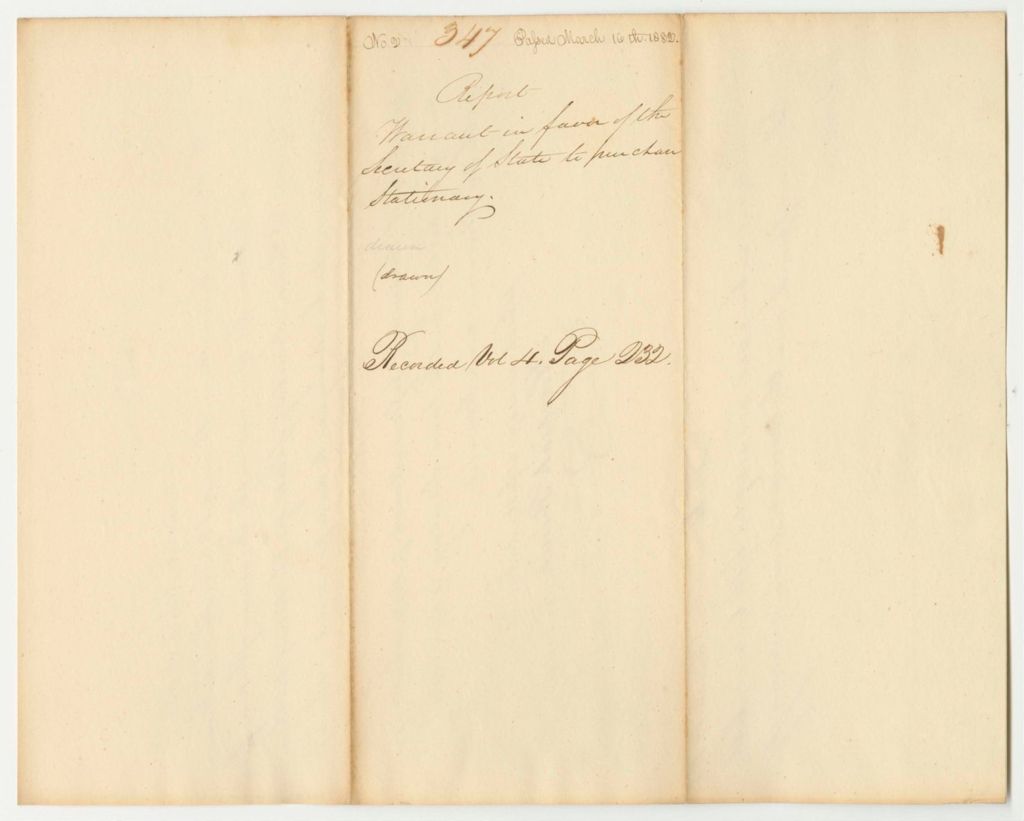 No 2 347 Passed March 16th 1832.
Report
Warrant in favor of the
Secretary of State to purchase
Stationary.
drawn
(drawn)
Recorded Vol 4. Page 232.